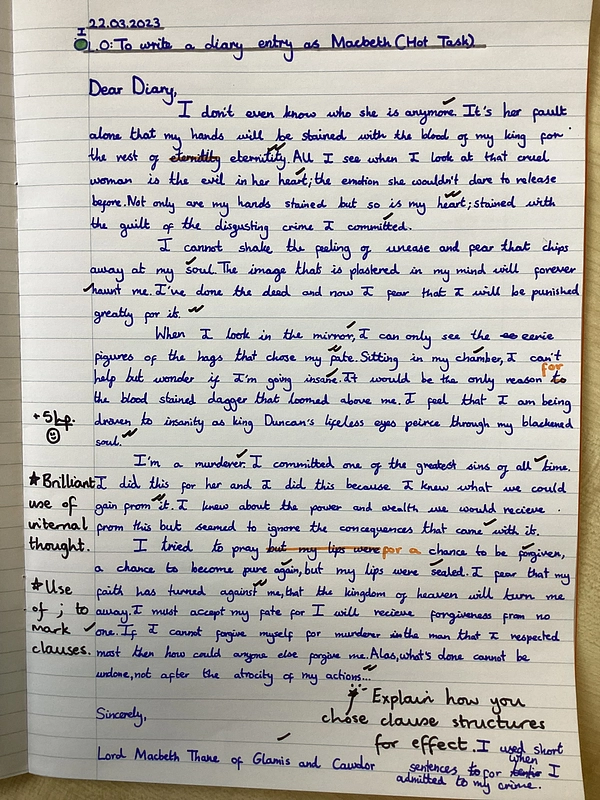 22.03.2023
I
L.O: To write a diary entry as Macbeth (Hot Task)
Dear Diary,
I don't even know who she is anymore. It's her fault
alone that my hands will be stained with the blood of my king for
the rest of eternitity eternitity. All I see when I look at that cruel
woman is the evil in her heart; the emotion she wouldn't dare to release
before. Not only are my hands stained but so is my heart; stained with
the guilt of the disgusting crime I committed.
I cannot shake the feeling of unease and fear that chips
away at my soul. The image that is plastered in my mind will forever
haunt me. I've done the deed and now I fear that I will be punished
greatly for it.
When I look in the mirror, I can only see the eerie
figures of the hags that chose my fate. Sitting in my chamber, I can't
help but wonder if I'm going insane. It would be the only reason to for
the blood stained dagger that loomed above me. I feel that I am being
droven to insanity as king Duncan's lifeless eyes peirce through my blackened
soul.
+5hp.
I'm a murderer. I committed one of the greatest sins of all time.
I did this for her and I did this because I knew what we could
gain from it. I knew about the power and wealth we would recieve
from this but seemed to ignore the concequences that came with it.
★Brilliant
use of
internal
thought.
I tried to pray but my lips were for a chance to be forgiven,
a chance to become pure again, but my lips were sealed. I fear that my
faith has turned against me, that the kingdom of heaven will turn me
away. I must accept my fate for I will recieve forgiveness from no
one. If I cannot forgive myself for murderer in the man that I respected
most then how could anyone else forgive me. Alas, what's done cannot be
undone, not after the atrocity of my actions...
★Use
of ; to
mark
clauses.
Sincerely,
Lord Macbeth Thane of Glamis and Cawdor
Explain how you
chose clause structures
for effect. I used short
sentences to for when I
admitted to my crime.